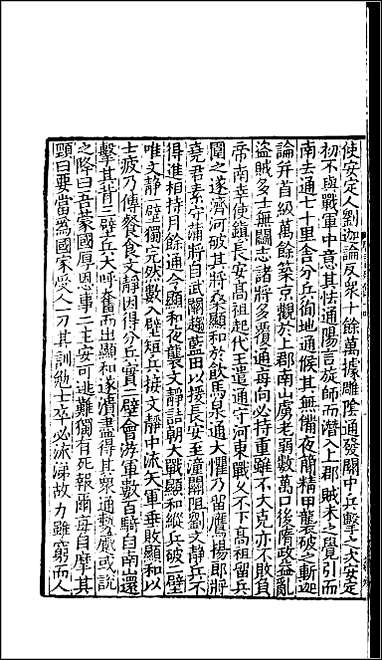 使安定人劉迦論反衆十餘萬據雕陰通發關中兵擊之次安定
初不與戰軍中意其怯通陽言旋師而潛入上郡賊未之覺引而
南去通七十里舍分兵徇地通候其無備夜簡精甲襲破之斬迦
論并首級萬餘築京觀於上郡南山虜老弱數萬口後隋政益亂
盗賊多士無鬬志諸將多覆通每向必持重雖不大克亦不敗負
帝南幸使鎮長安高祖起代王遣通守河東戰久不下高祖留兵
圍之遂濟河破其將桑顯和於飲馬泉通大懼乃留鷹揚郎將
堯君素守蒲將自武關趨藍田以援長安至潼關阻劉文靜兵不
得進相持月餘通令顯和夜襲文靜詰朝大戰顯和縱兵破二壁
唯文靜一壁獨完然數入壁短兵接文靜中流矢軍垂敗顯和以
士疲乃傳餐食文靜因得分兵實二壁會游軍數百騎自南山還
擊其背三壁兵大呼奮而出顯和遂潰盡得其衆通勢蹙或說
之降曰吾蒙國厚恩事二主安可逃難獨有死報爾每自摩其
頸曰要當爲國家受人一刀其訓勉士卒必流涕故力雖窮而人